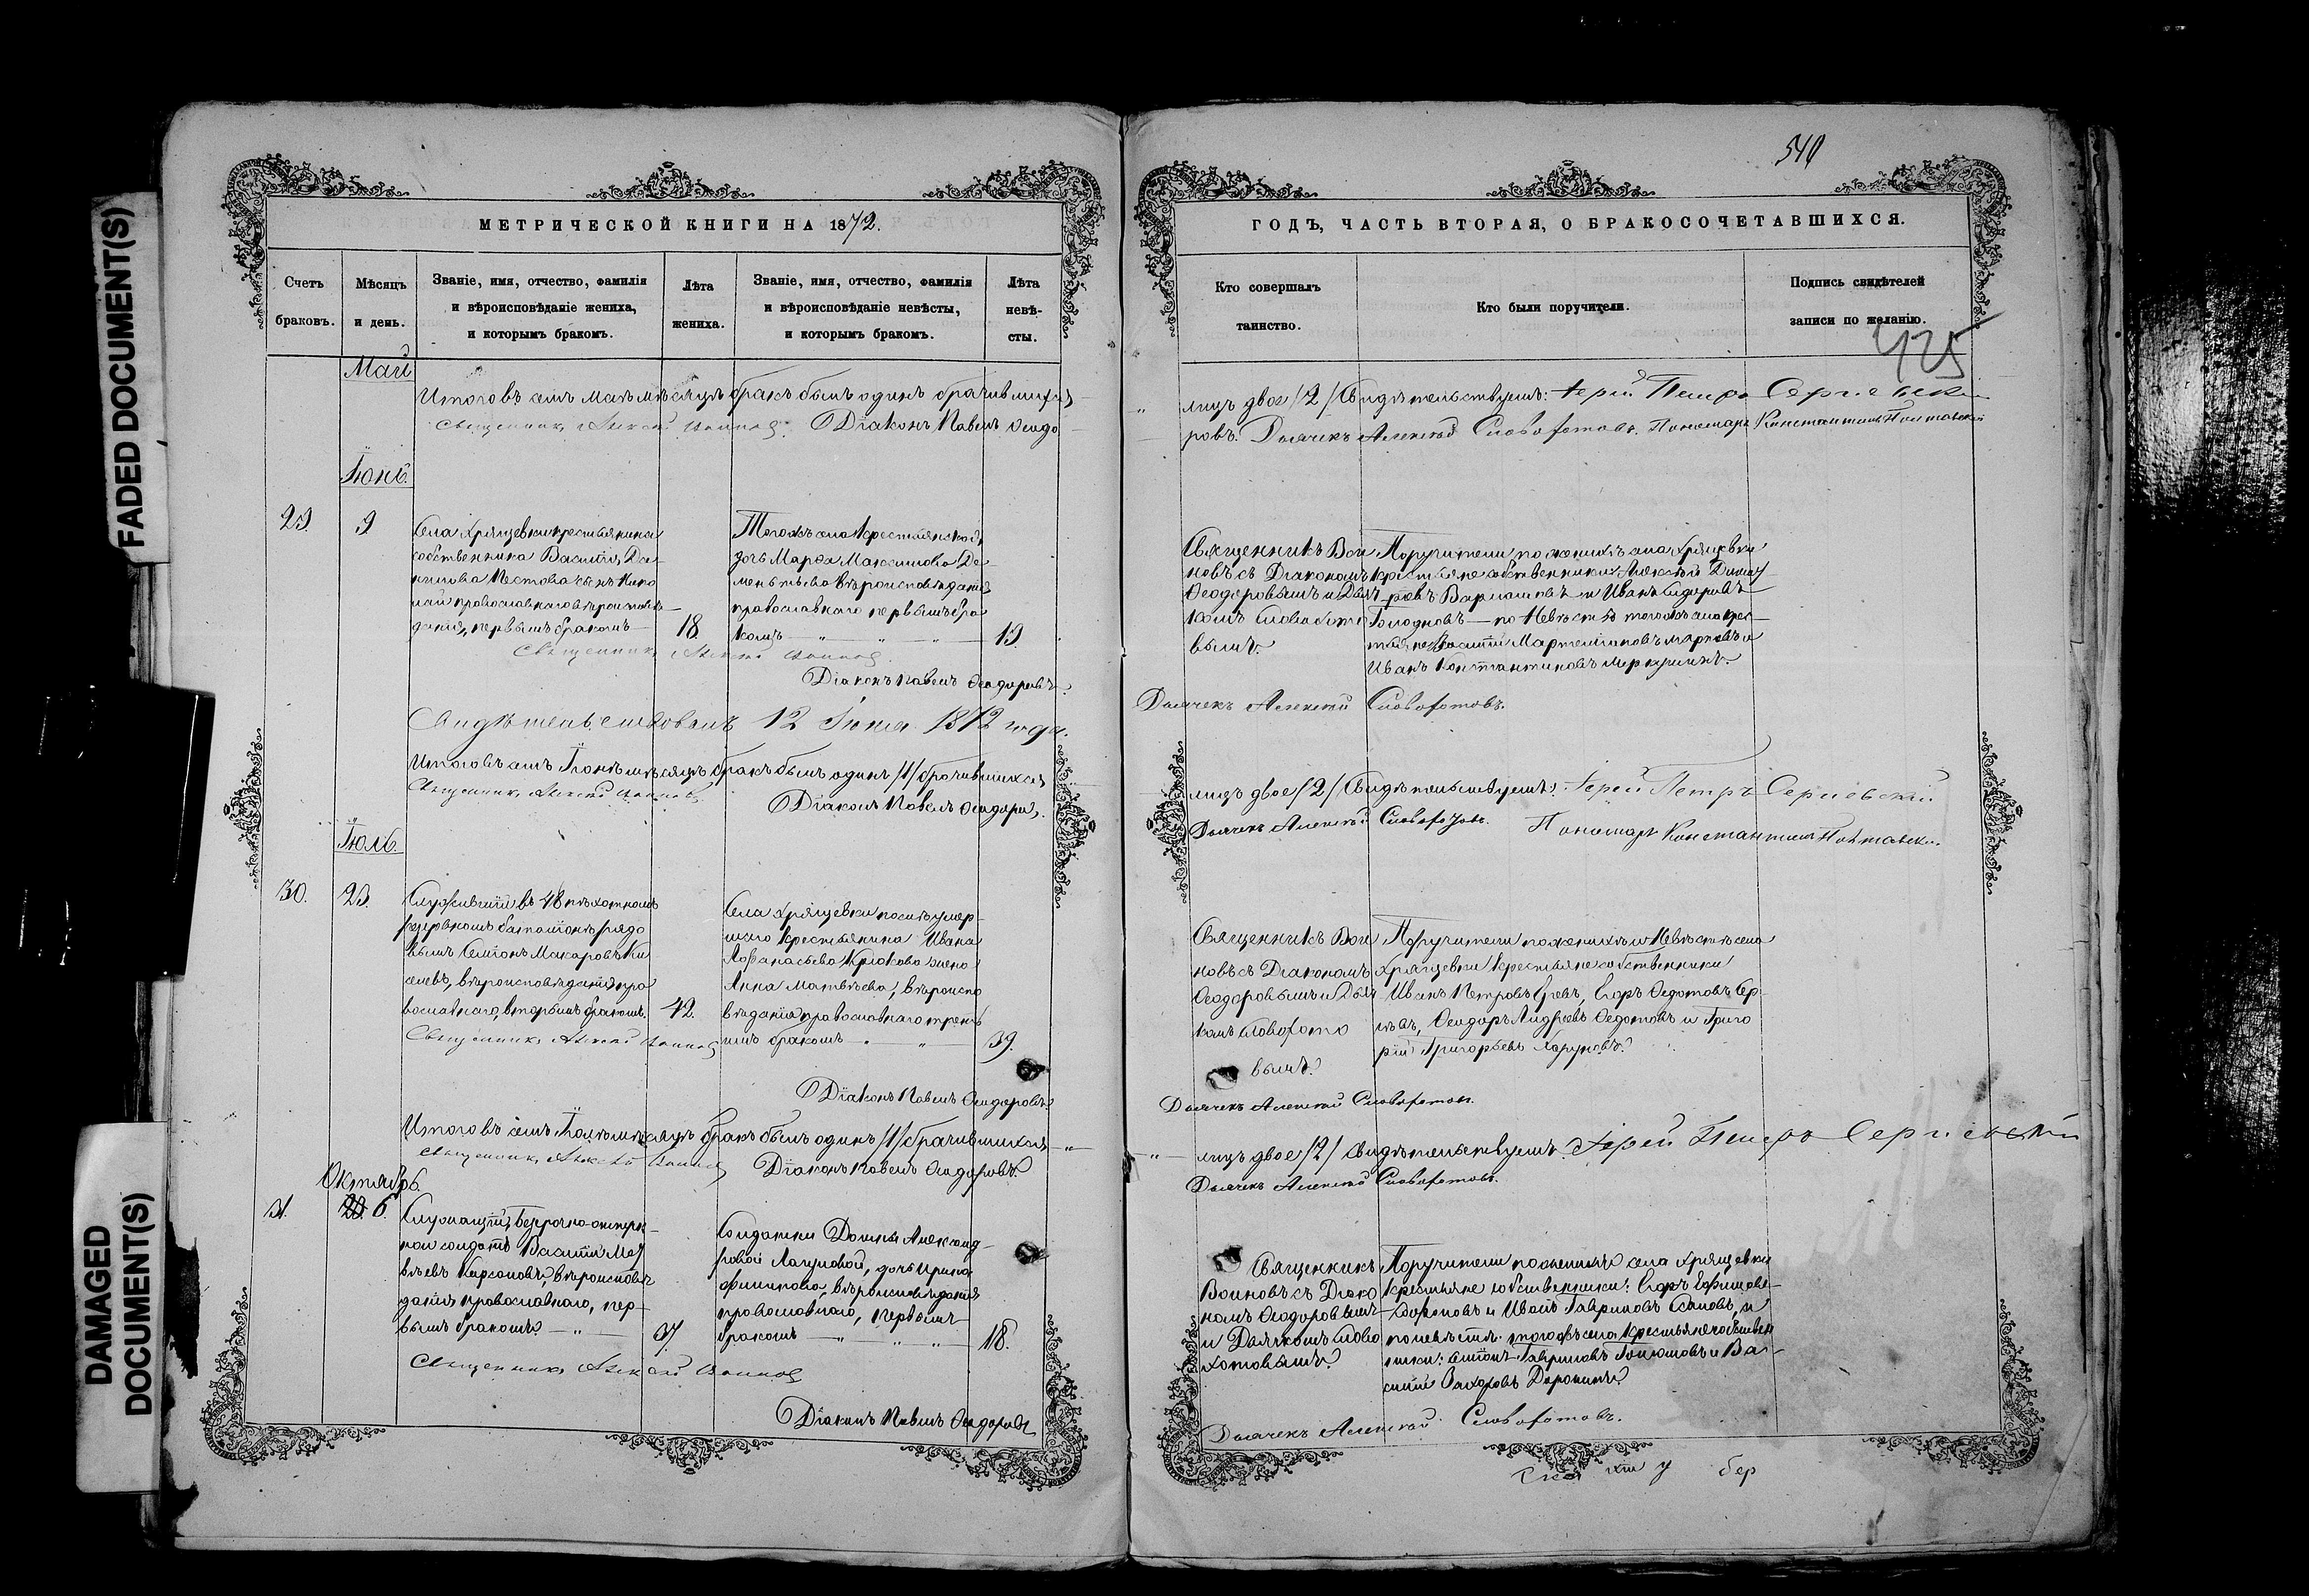 FADED DOCUMENT(S)
DAMAGED
DOCUMENT(S)
МЕТРИЧЕСКОЙ КНИГИ НА 1872.
Счетъ
браковъ.
Мѣсяцъ
и день.
Званіе, имя, отчество, фамилія
и вѣроисповѣданіе жениха,
и которымъ бракомъ.
Лѣта
жениха.
Званіе, имя, отчество, фамилія
и вѣроисповѣданіе невѣсты,
и которымъ бракомъ.
Лѣта
невѣ-
сты.
Май
Итого въ семъ Маѣ мѣсяцѣ бракъ былъ одинъ брачившихся
Священникъ Алексѣй Воиновъ. Діаконъ Павелъ Ѳеодо
Іюнь.
29. 9
Села Хрящевки крестьянина
собственника Василія
сынъ Нико
лай православнаго вѣроисповѣ
данія, первымъ бракомъ
18
Тогожъ села крестьянская
дочь Марѳа Максимова Де-
ментьева вѣроисповѣданія
православнаго первымъ бра
комъ
19.
Священникъ Алексѣй Воиновъ.
Діаконъ Павелъ Ѳеодоровъ.
12 Іюня 1872 года.
Итого въ семъ Іюнѣ мѣсяцѣ бракъ былъ одинъ /1/ брачившихся
Священникъ Алексѣй Воиновъ
Діаконъ Павелъ Ѳеодоровъ.
Іюль.
30. 23.
Служившій въ 48 пѣхотномъ
резервномъ баталіонѣ рядо
вымъ Семіонъ Макаровъ Ки
селевъ, вѣроисповѣданія пра
вославнаго, вторымъ бракомъ.
42.
Села Хрящевки послѣ умер-
шаго крестьянина Ивана
Аѳанасьева Крюкова жена
Анна Матвѣева, вѣроиспо
вѣданія православнаго треть
имъ бракомъ
39.
Священникъ Алексѣй Воиновъ
Діаконъ Павелъ Ѳеодоровъ.
Итого въ семъ Іюлѣ мѣсяцѣ бракъ былъ одинъ /1/ брачившихся
Священникъ Алексѣй Воиновъ Діаконъ Павелъ Ѳеодоровъ.
Октябрь.
31. 6.
солдатъ Василій Мат
вѣевъ вѣроисповѣ
данія православнаго, пер-
вымъ бракомъ.
Солдатки Домны Александ-
ровой дочь Ирина
Филиппова, вѣроисповѣданія
православнаго, первымъ
бракомъ
18.
Священникъ Алексѣй Воиновъ
Діаконъ Павелъ Ѳеодоровъ
ГОДЪ, ЧАСТЬ ВТОРАЯ, О БРАКОСОЧЕТАВШИХСЯ.
Кто совершалъ
таинство.
Кто были поручители.
Подпись свидѣтелей
записи по желанію.
425
лицъ двое /2/ Свидѣтельствуемъ: Іерей Петръ Сергіевскій
ровъ. Дьячекъ Алексѣй Словохотовъ. Пономарь Константинъ Полтавскій
Священникъ Вои
новъ съ Діакономъ
Ѳеодоровымъ и Дьяч
комъ Словохото
вымъ.
Поручители по женихѣ села Хрящевки
крестьяне собственники Алексѣй
Варламовъ и Иванъ Сидоровъ
Голодновъ — по Невѣстѣ тогожъ села крес-
тьяне Василій Мартемьяновъ и
Иванъ Константиновъ Меркулинъ.
Дьячекъ Алексѣй Словохотовъ.
лицъ двое /2/ Свидѣтельствуемъ: Іерей Петръ Сергіевскій
Дьячекъ Алексѣй Словохотовъ. Пономарь Константинъ Полтавскій.
Священникъ Вои
новъ съ Діакономъ
Ѳеодоровымъ и Дьяч
комъ Словохото
вымъ.
Поручители по женихѣ и Невѣстѣ села
Хрящевки крестьяне собственники
Иванъ Петровъ Егоръ Ѳедотовъ
Ѳеодоръ Андреевъ Ѳедотовъ и Григо
рій Григорьевъ
Дьячекъ Алексѣй Словохотовъ.
лицъ двое /2/ Свидѣтельствуемъ. Іерей Петръ Сергіевскій
Дьячекъ Алексѣй Словохотовъ.
Священникъ
Воиновъ съ Діако
номъ Ѳеодоровымъ
и Дьячкомъ Слово
хотовымъ.
Поручители по женихѣ села Хрящевки
крестьяне собственники: Егоръ
и Иванъ Гавриловъ и
по невѣстѣ: тогожъ села крестьяне собствен
ники: Гавриловъ и Ва-
силій Захаровъ Доронинъ.
Дьячекъ Алексѣй Словохотовъ.